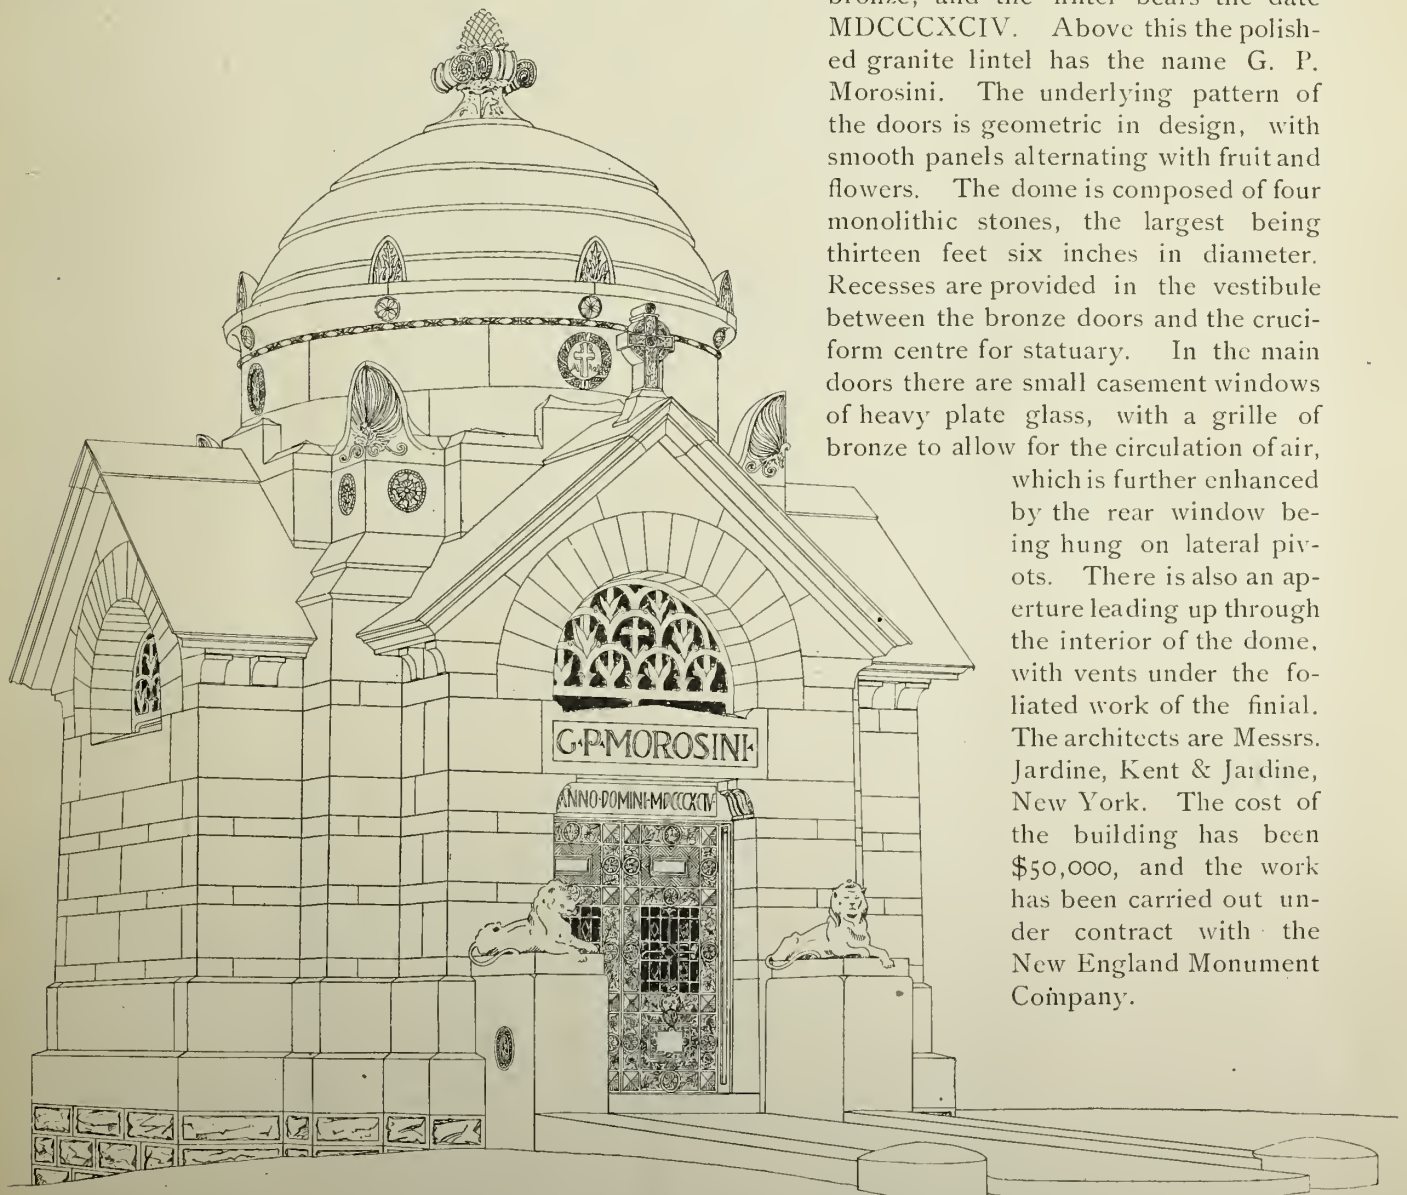 bronze, and the lintel bears the date
MDCCCXCIV. Above this the polish-
ed granite lintel has the name G. P.
Morosini. The underlying pattern of
the doors is geometric in design, with
smooth panels alternating with fruit and
flowers. The dome is composed of four
monolithic stones, the largest being
thirteen feet six inches in diameter.
Recesses are provided in the vestibule
between the bronze doors and the cruci-
form centre for statuary. In the main
doors there are small casement windows
of heavy plate glass, with a grille of
bronze to allow for the circulation of air,
which is further enhanced
by the rear window be-
ing hung on lateral piv-
ots. There is also an ap-
erture leading up through
the interior of the dome,
with vents under the fo-
liated work of the finial.
The architects are Messrs.
Jardine, Kent & Jardine,
New York. The cost of
the building has been
$50,000, and the work
has been carried out un-
der contract with the
New England Monument
Company.
G·P·MOROSINI·
ANNO·DOMINI·MDCCCXCIV·